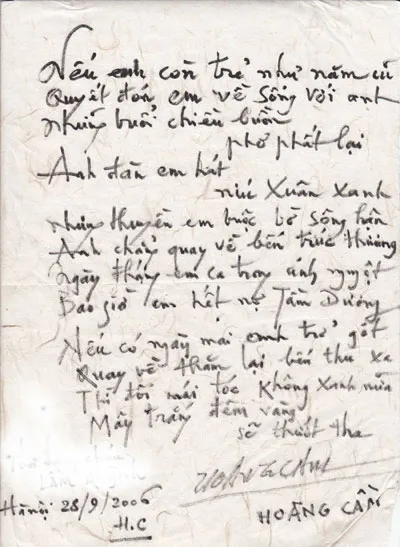 Nếu anh còn trẻ như năm cũ
Quyết đón em về sống với anh
Những buổi chiều buồn
phơ phất lại
Anh đàn em hát
níu Xuân xanh
Nhưng thuyền em buộc bờ sông hận
Anh chẳng quay về bến trúc
Ngày tháng em ca trong ánh nguyệt
Bao giờ em hết nợ Tầm Dương
Nếu có ngày mai anh trở gót
Quay về thăm lại bến thu xa
Thì đôi mái tóc không xanh nữa
Mây trắng đêm vàng
sẽ thướt tha
Hànội 28/9/2006
H.C
HOÀNG CẦM